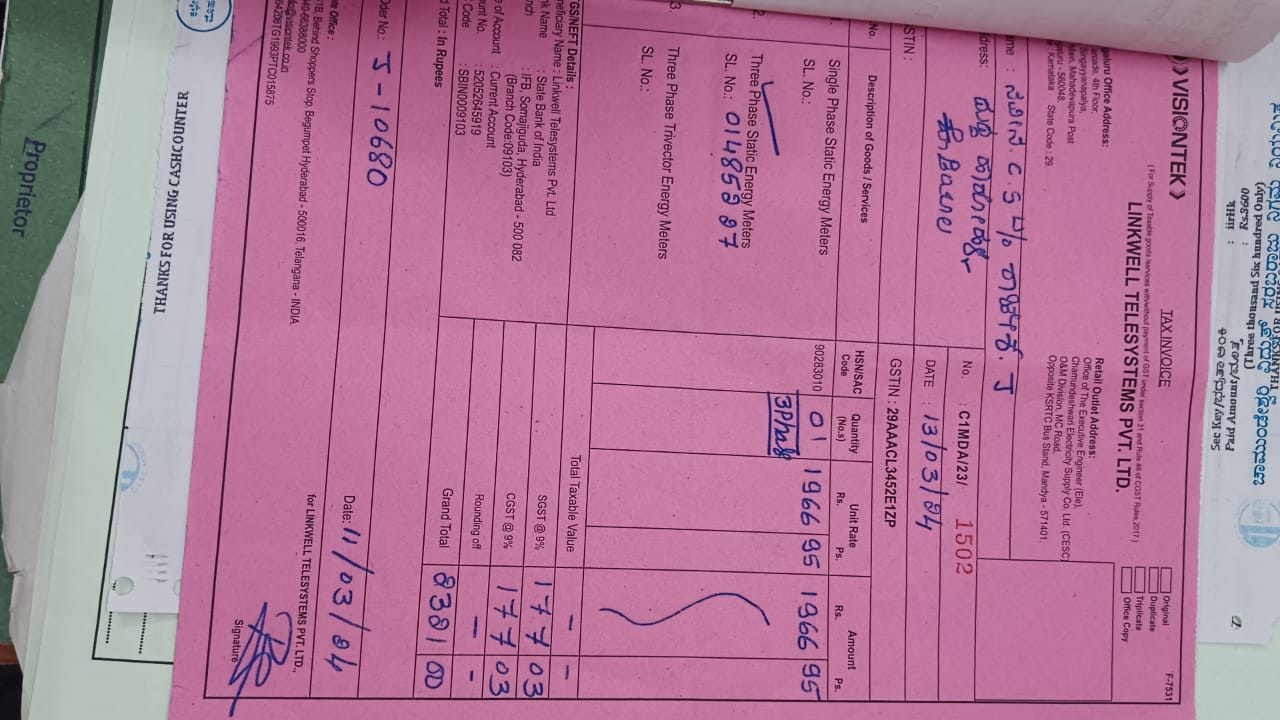 VISIONTEK
TAX INVOICE
( For Supply of Taxable goods /services with/without payment of GST under section 31 and Rule 46 of CGST Rules 2017 )
LINKWELL TELESYSTEMS PVT. LTD.
Original
Duplicate
Triplicate
Office Copy
F-7531
galuru Office Address:
4th Floor,
Singayyanapalya,
Main, Mahadevapura Post
- 560048.
Karnataka State Code : 29
Retail Outlet Address:
Office of The Executive Engineer (Ele),
Chamundeshwari Electricity Supply Co. Ltd. (CESC)
O&M Division, MC Road,
Opposite KSRTC Bus Stand, Mandya - 571401.
me : ನವೀನ. C. S
J
dress:
No. : C1MDA/23/ 1502
DATE : 13/03/24
STIN :
GSTIN : 29AAACL3452E1ZP
No. Description of Goods / Services HSN/SAC Code Quantity (No.s) Unit Rate Rs. Ps. Amount Rs. Ps.
Single Phase Static Energy Meters 90283010 01 1966 95 1966 95
SL. No.:
3Phase
2. Three Phase Static Energy Meters
SL. No.: 01485297
3. Three Phase Trivector Energy Meters
SL. No.:
Total Taxable Value - -
GS/NEFT Details :
neficiary Name : Linkwell Telesystems Pvt. Ltd
nk Name : State Bank of India
nch : IFB, Somajiguda, Hyderabad - 500 082
(Branch Code:09103)
e of Account : Current Account
unt No. : 52052645919
Code : SBIN0009103
SGST @ 9% 177 03
CGST @ 9% 177 03
Rounding off - -
d Total : In Rupees
Grand Total 2321 00
der No.: J-10680
Date: 11/03/24
te Office :
1B, Behind Shoppers Stop, Begumpet Hyderabad - 500016. Telangana - INDIA
40-66388000
visiontek.co.in
TG1993PTC015875
for LINKWELL TELESYSTEMS PVT. LTD.,
Signature
THANKS FOR USING CASH COUNTER
Proprietor
Paid Amount
Rs : 3600
(Three thousand Six hundred Only)